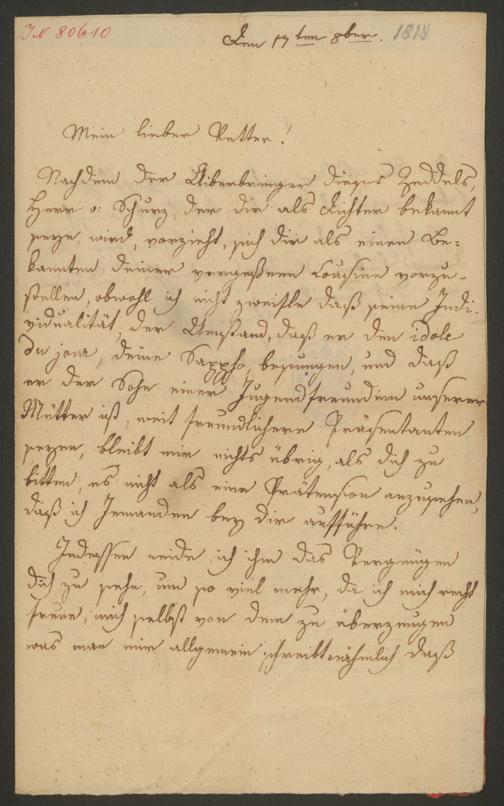 IN 80610
Den 17ten 8ber. 1818
Mein lieber Vetter!
Nachdem der Überbringer dieses Zeddels,
Herr v: Schurz, der dir als Dichter bekannt
seyn wird, vorzieht, sich dir als einen Be-
kannten deiner vergeßenen Cousine vorzu-
stellen, obwohl ich nicht zweifle daß seine Indi-
vidualität, der Umstand, daß er den idole
du jour, deine Sappho, besungen, und daß
er der Sohn einer Jugendfreundinn unserer
Mütter ist, weit freundlichere Präsentanten
seyen, bleibt mir nichts übrig, als dich zu
bitten, es nicht als eine Prätension anzusehen,
daß ich Jemanden bey dir aufführe.
Indessen neide ich ihm das Vergnügen
dich zu sehn, um so viel mehr, da ich mich recht
freue, mich selbst von dem zu überzeugen
was man mir allgemein schreibt nähmlich daß